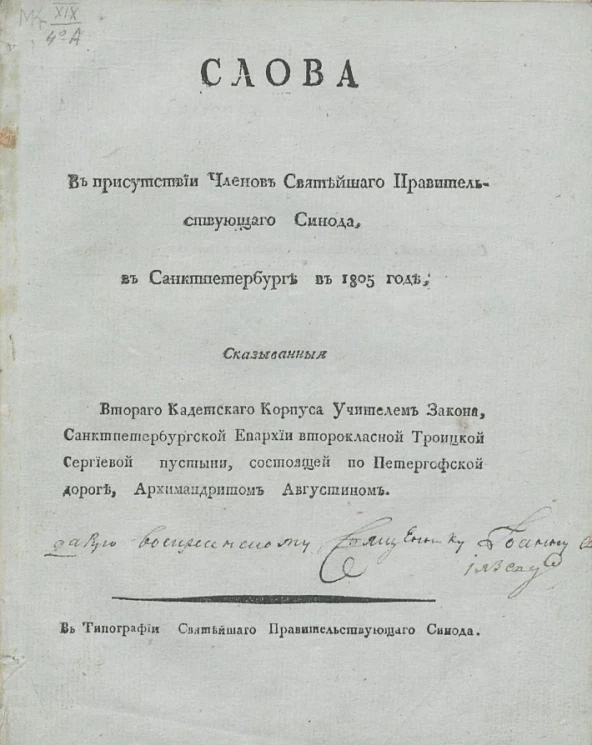 XIX
4° A
СЛОВА
Въ присутствїи Членовъ Святѣйшаго Правитель-
ствующаго Синода,
въ Санктпетербургѣ въ 1805 годѣ,
Сказыванныя
Втораго Кадетскаго Корпуса Учителемъ Закона,
Санктпетербургской Епархїи второкласной Троицкой
Сергїевой пустыни, состоящей по Петергофской
дорогѣ, Архимандритомъ Августиномъ.
Въ Типографїи Святѣйшаго Правительствующаго Синода.